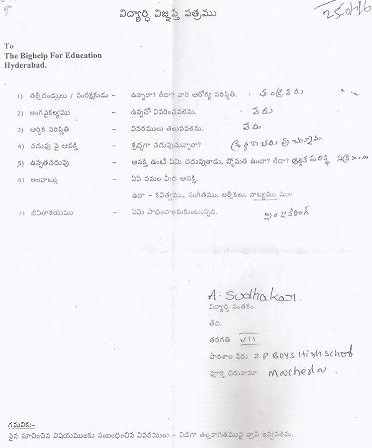 విద్యార్థి విజ్ఞప్తి పత్రము
To
The Bighelp For Education
Hyderabad.
1) తల్లిదండ్రులు / సంరక్షకుడు - ఉన్నారా? లేదా? వారి ఆరోగ్య పరిస్థితి.
2) అంగవైకల్యము - ఉన్నచో వివరించవలెను. లేదు
3) ఆర్థిక పరిస్థితి - వివరములు తెలుపవలెను. పేద
4) చదువు పై ఆసక్తి - శ్రద్ధగా చదువుచున్నారా?
5) ఉన్నతచదువు - ఆసక్తి ఉంటే ఏమి చదువుతాడు. స్తోమత ఉందా? లేదా?
6) అలవాట్లు - ఏ ఏ పనుల మీద ఆసక్తి.
ఉదా - కవిత్వము, సంగీతము, అల్లికలు, నాట్యము
7) జీవితాశయము - ఏమి సాధించాలనుకుంటున్నది.
A. Sudhakar.
విద్యార్థి సంతకం
తేది:
తరగతి VII
పాఠశాల పేరు: Z P BOYS High School
పూర్తి చిరునామా Macherla
గమనిక:-
పైన సూచించిన విషయములకు సంబంధించిన వివరములు - విడిగా తెల్లకాగితముపై వ్రాసి ఇవ్వవలెను.